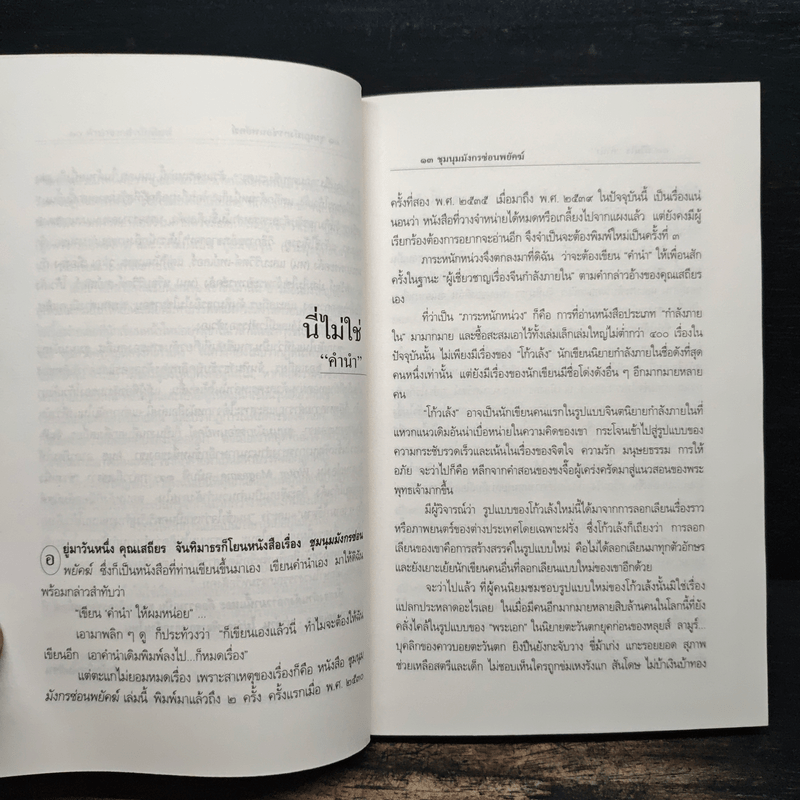 นี่ไม่ใช่
“คำนำ”
อยู่มาวันหนึ่ง คุณเสถียร จันทิมาธรก็โยนหนังสือเรื่อง ชุมนุมมังกรซ่อน
พยัคฆ์ ซึ่งก็เป็นหนังสือที่ท่านเขียนขึ้นมาเอง เขียนคำนำเอง มาให้ดิฉัน
พร้อมกล่าวสำทับว่า
“เขียน ‘คำนำ’ ให้ผมหน่อย” ...
เอามาพลิก ๆ ดู ก็ประท้วงว่า “ก็เขียนเองแล้วนี่ ทำไมจะต้องให้ฉัน
เขียนอีก เอาคำนำเดิมพิมพ์ลงไป...ก็หมดเรื่อง”
แต่ตะแกไม่ยอมหมดเรื่อง เพราะสาเหตุของเรื่องก็คือ หนังสือ ชุมนุม
มังกรซ่อนพยัคฆ์ เล่มนี้ พิมพ์มาแล้วถึง ๒ ครั้ง ครั้งแรกเมื่อ พ.ศ. ๒๕๓๐
๑๓ ชุมนุมมังกรซ่อนพยัคฆ์
ครั้งที่สอง พ.ศ. ๒๕๓๕ เมื่อมาถึง พ.ศ. ๒๕๓๙ ในปัจจุบันนี้ เป็นเรื่องแน่
นอนว่า หนังสือที่วางจำหน่ายได้หมดหรือเกลี้ยงไปจากแผงแล้ว แต่ยังคงมีผู้
เรียกร้องต้องการอยากจะอ่านอีก จึงจำเป็นจะต้องพิมพ์ใหม่เป็นครั้งที่ ๓
ภาระหนักหน่วงจึงตกลงมาที่ดิฉัน ว่าจะต้องเขียน “คำนำ” ให้เพื่อนสัก
ครั้งในฐานะ “ผู้เชี่ยวชาญเรื่องจีนกำลังภายใน” ตามคำกล่าวอ้างของคุณเสถียร
เอง
ที่ว่าเป็น “ภาระหนักหน่วง” ก็คือ การที่อ่านหนังสือประเภท “กำลังภาย
ใน” มามากมาย และซื้อสะสมเอาไว้ทั้งเล่มเล็กเล่มใหญ่ไม่ต่ำกว่า ๔๐๐ เรื่องใน
ปัจจุบันนั้น ไม่เพียงมีเรื่องของ “โก้วเล้ง” นักเขียนนิยายกำลังภายในชื่อดังที่สุด
คนหนึ่งเท่านั้น แต่ยังมีเรื่องของนักเขียนมีชื่อโด่งดังอื่น ๆ อีกมากมายหลาย
คน
“โก้วเล้ง” อาจเป็นนักเขียนคนแรกในรูปแบบจินตนิยายกำลังภายในที่
แหวกแนวเดิมอันน่าเบื่อหน่ายในความคิดของเขา กระโจนเข้าไปสู่รูปแบบของ
ความกระชับรวดเร็วและเน้นในเรื่องของจิตใจ ความรัก มนุษยธรรม การให้
อภัย จะว่าไปก็คือ หลีกจากคำสอนของขงจื๊อผู้เคร่งครัดมาสู่แนวสอนของพระ
พุทธเจ้ามากขึ้น
มีผู้วิจารณ์ว่า รูปแบบของโก้วเล้งใหม่นี้ได้มาจากการลอกเลียนเรื่องราว
หรือภาพยนตร์ของต่างประเทศโดยเฉพาะฝรั่ง ซึ่งโก้วเล้งก็เถียงว่า การลอก
เลียนของเขาคือการสร้างสรรค์ในรูปแบบใหม่ คือไม่ได้ลอกเลียนมาทุกตัวอักษร
และยังเยาะเย้ยนักเขียนคนอื่นที่ลอกเลียนแบบใหม่ของเขาอีกด้วย
จะว่าไปแล้ว ที่ผู้คนนิยมชมชอบรูปแบบใหม่ของโก้วเล้งนั้นมิใช่เรื่อง
แปลกประหลาดอะไรเลย ในเมื่อมีคนอีกมากมายหลายสิบล้านคนในโลกนี้ที่ยัง
คลั่งไคล้ในรูปแบบของ “พระเอก” ในนิยายตะวันตกยุคก่อนของหลุยส์ ลามูร์...
บุคลิกของคาวบอยตะวันตก ยิงปืนยังกะจับวาง ขี่ม้าเก่ง แกะรอยยอด สุภาพ
ช่วยเหลือสตรีและเด็ก ไม่ชอบเห็นใครถูกข่มเหงรังแก สันโดษ ไม่บ้าเงินบ้าทอง